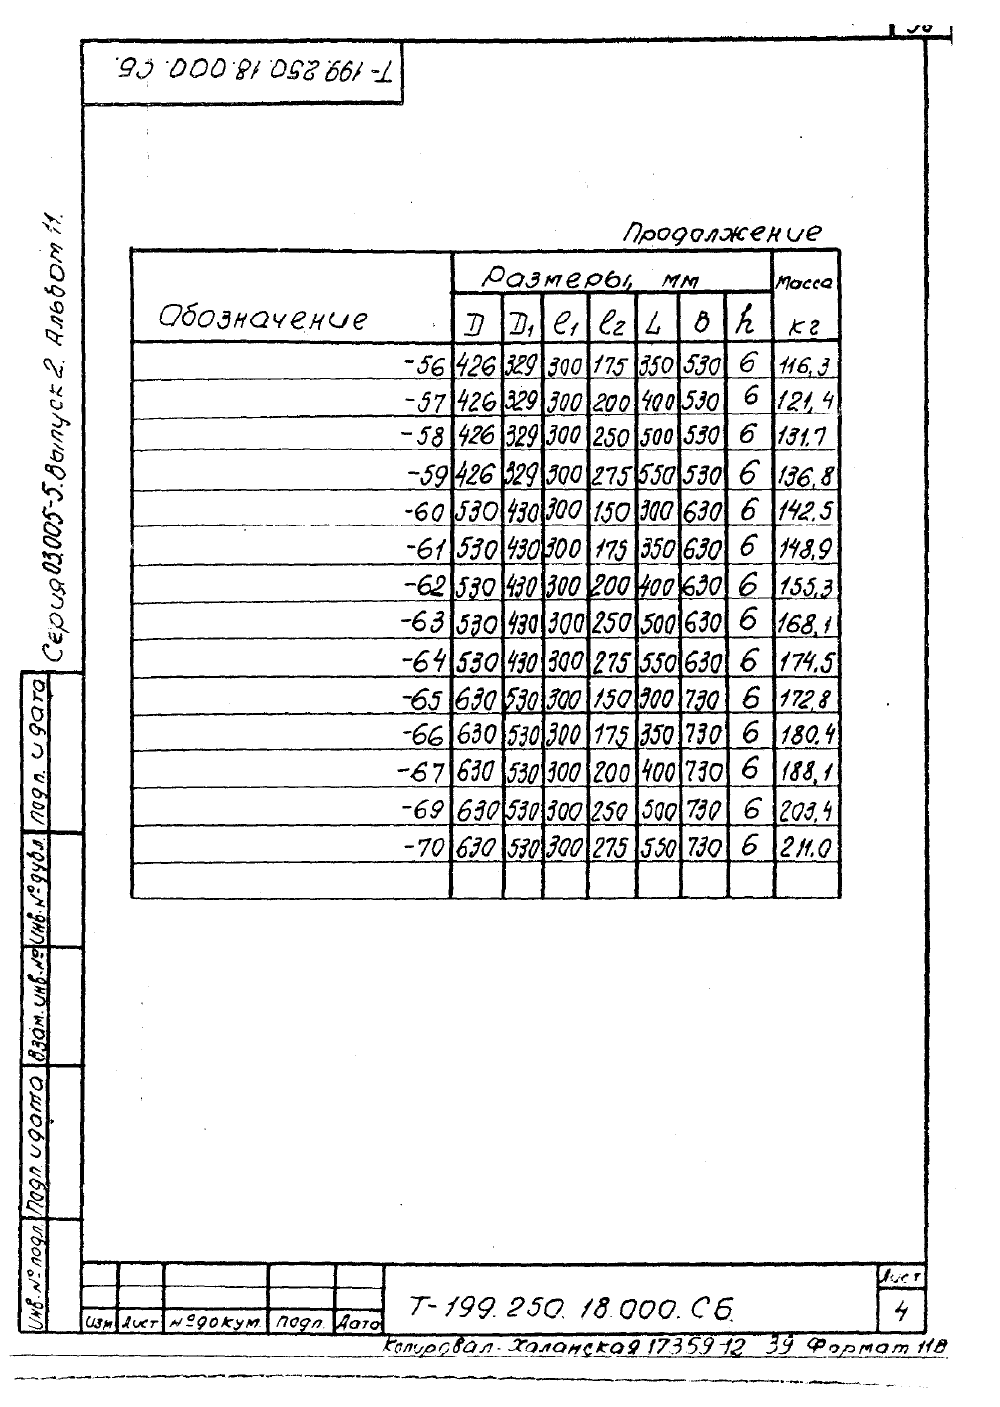 Т-199.250.18.000.СБ.
Серия 03.005-5. Выпуск 2. Альбом 11.
Продолжение
Обозначение Размеры, мм Масса кг
D D1 ℓ1 ℓ2 L B h
-56 426 329 300 175 350 530 6 116,3
-57 426 329 300 200 400 530 6 121,4
-58 426 329 300 250 500 530 6 131.7
-59 426 329 300 275 550 530 6 136,8
-60 530 430 300 150 300 630 6 142,5
-61 530 430 300 175 350 630 6 148,9
-62 530 430 300 200 400 630 6 155,3
-63 530 430 300 250 500 630 6 168,1
-64 530 430 300 275 550 630 6 174.5
-65 630 530 300 150 300 730 6 172,8
-66 630 530 300 175 350 730 6 180.4
-67 630 530 300 200 400 730 6 188,1
-69 630 530 300 250 500 730 6 203,4
-70 630 530 300 275 550 730 6 211.0
Подп. и дата
Инв. № дубл.
Взам. инв. №
Подп. и дата
Инв. № подл.
Изм Лист № докум. Подп. Дата
Т-199.250.18.000.СБ.
Лист
4
Копировал - Халанская 17359-12 39 Формат 11В